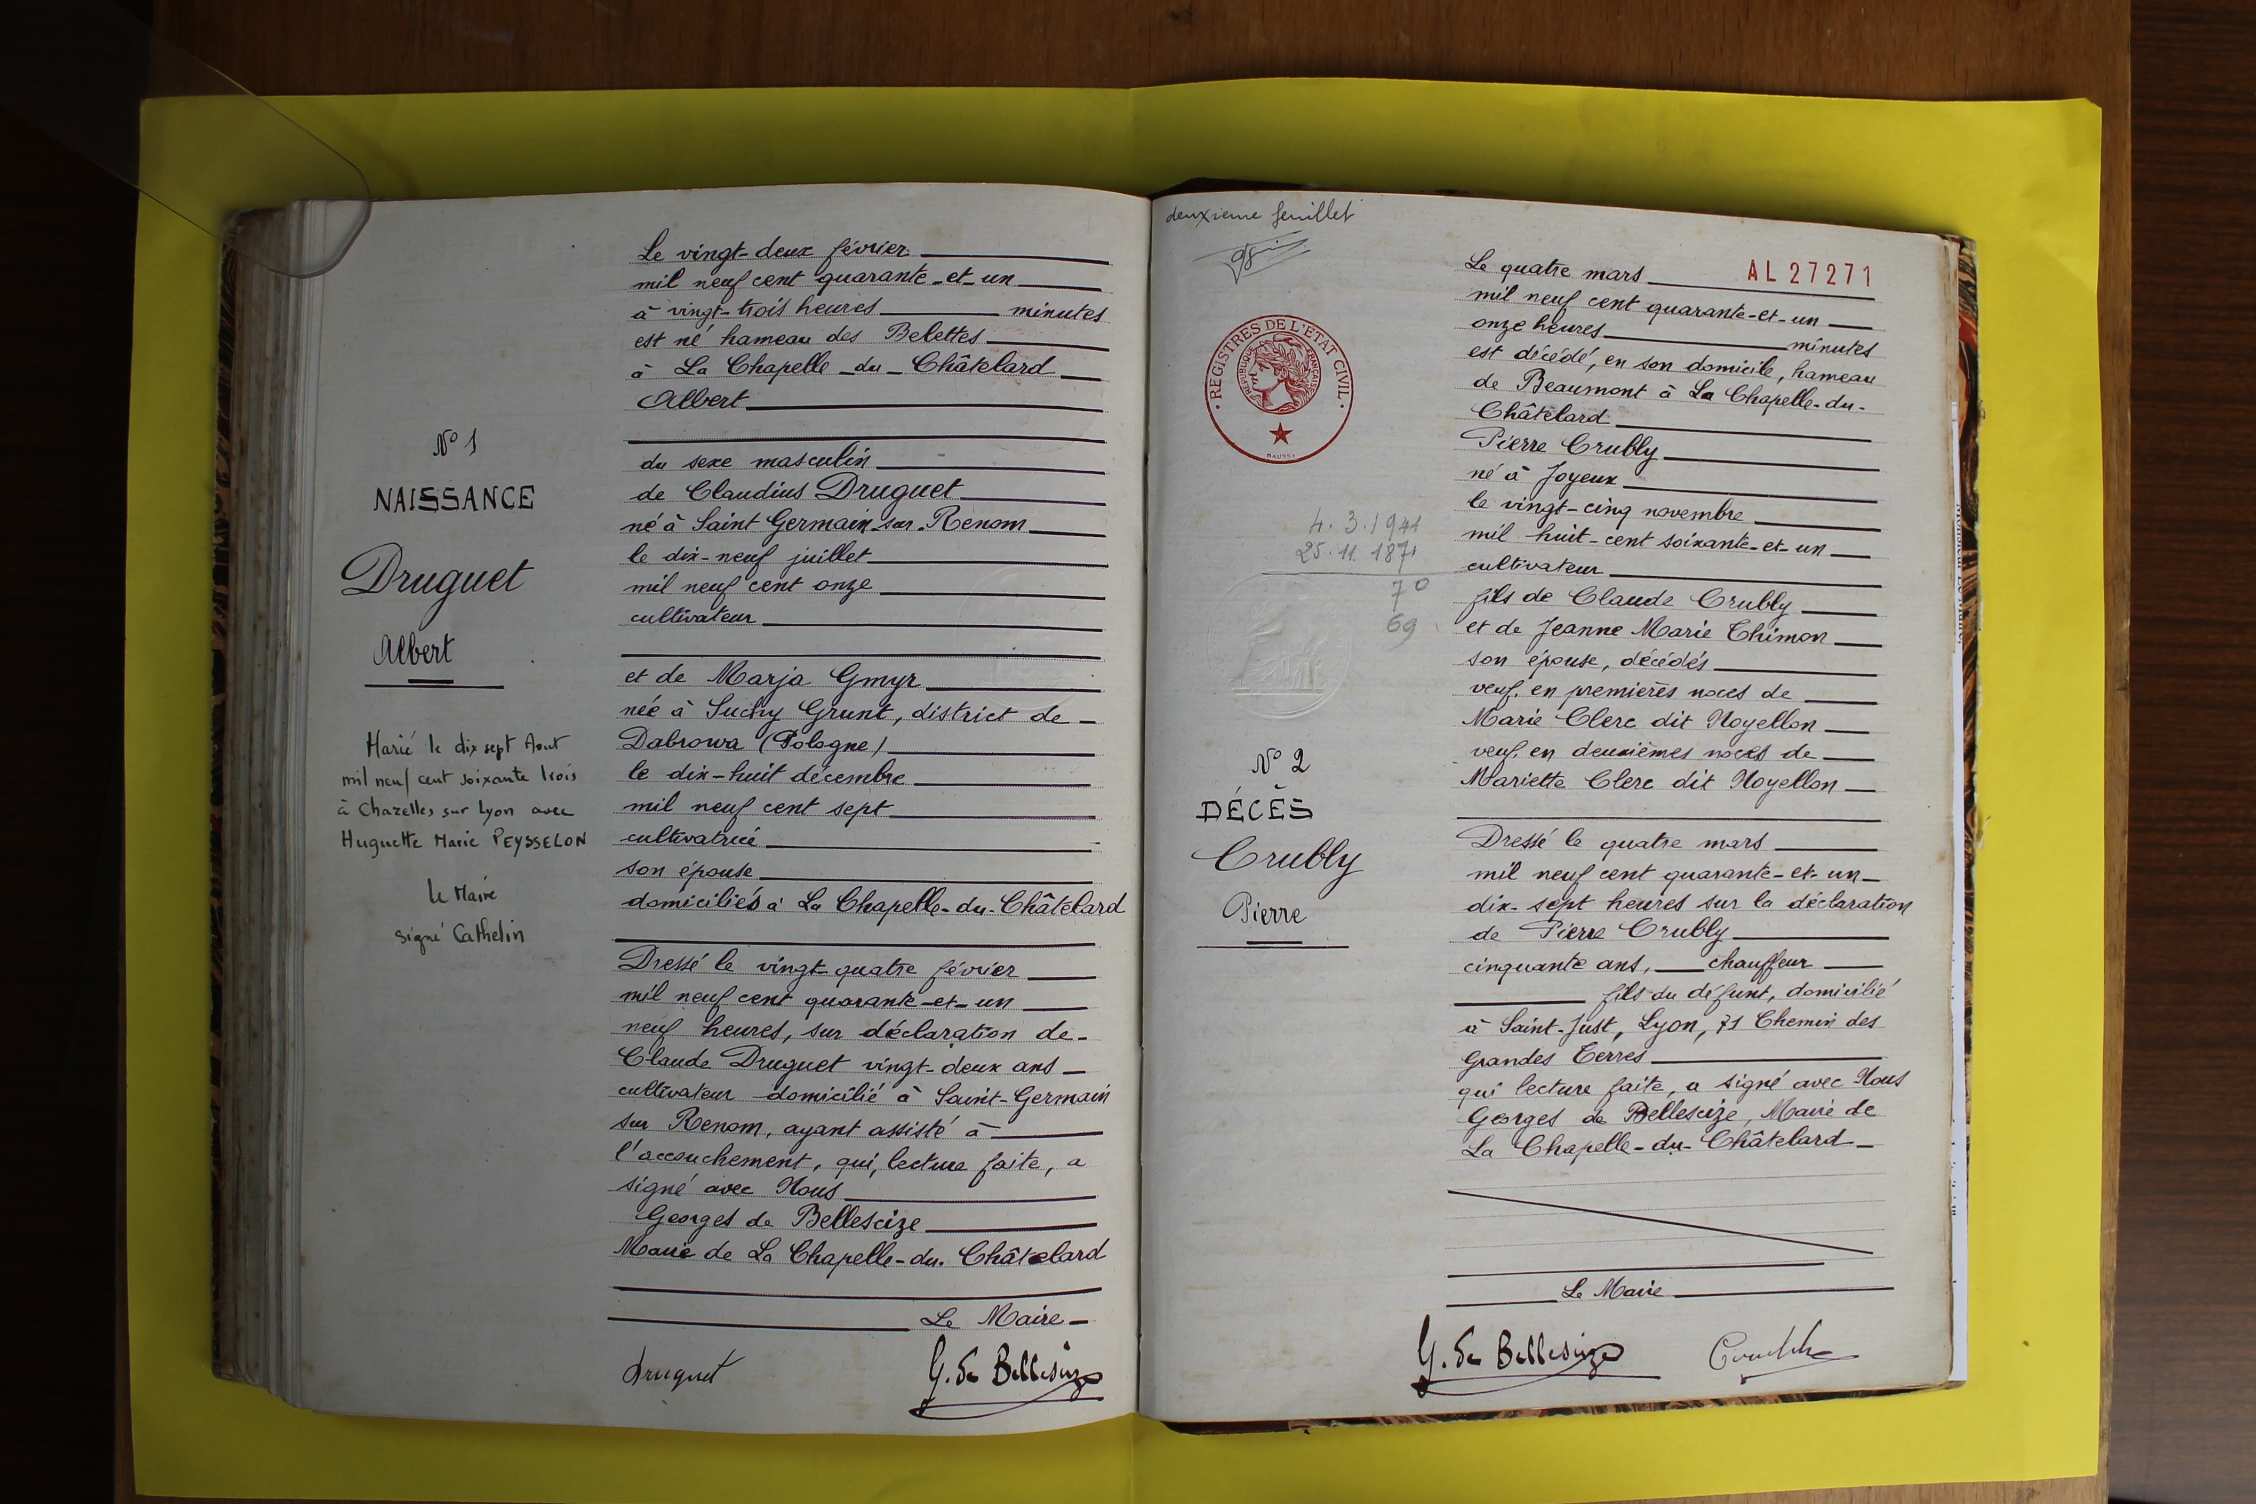 Le vingt-deux février
mil neuf cent quarante-et-un
à vingt-trois heures minutes
est né hameau des Belettes
à La Chapelle-du-Châtelard
Albert
du sexe masculin
de Claudius Druguet
né à Saint Germain-sur-Renom
le dix-neuf juillet
mil neuf cent onze
cultivateur
et de Marja Gmyr
née à Suchy Grunt, district de
Dabrowa (Pologne)
le dix-huit décembre
mil neuf cent sept
cultivatrice
son épouse
domiciliés à La Chapelle-du-Châtelard
Dressé le vingt-quatre février
mil neuf cent quarante-et-un
neuf heures, sur déclaration de
Claude Druguet vingt-deux ans
cultivateur domicilié à Saint-Germain
sur Renom, ayant assisté à
l'accouchement, qui, lecture faite, a
signé avec Nous
Georges de Bellescize
Maire de La Chapelle-du-Châtelard
Le Maire
Druguet G. de Bellescize
N° 1
NAISSANCE
Druguet
Albert
Marié le dix sept Aout
mil neuf cent soixante trois
à Chazelles sur Lyon avec
Huguette Marie PEYSSELON
Le Maire
signé Cathelin
deuxieme feuillet
REGISTRES DE L'ETAT CIVIL
REPUBLIQUE FRANÇAISE
4.3.1941
25.11.1871
70
69
N° 2
DÉCÈS
Crubly
Pierre
AL 27271
Le quatre mars
mil neuf cent quarante-et-un
onze heures minutes
est décédé, en son domicile, hameau
de Beaumont à La Chapelle-du-
Châtelard
Pierre Crubly
né à Joyeux
le vingt-cinq novembre
mil huit-cent soixante-et-un
cultivateur
fils de Claude Crubly
et de Jeanne Marie Thimon
son épouse, décédés
veuf, en premières noces de
Marie Clerc dit Noyellon
veuf, en deuxièmes noces de
Mariette Clerc dit Noyellon
Dressé le quatre mars
mil neuf cent quarante-et-un
dix-sept heures sur la déclaration
de Pierre Crubly
cinquante ans, chauffeur
fils du défunt, domicilié
à Saint-Just, Lyon, 71 Chemin des
Grandes Terres
qui lecture faite, a signé avec Nous
Georges de Bellescize, Maire de
La Chapelle-du-Châtelard
Le Maire
G. de Bellescize